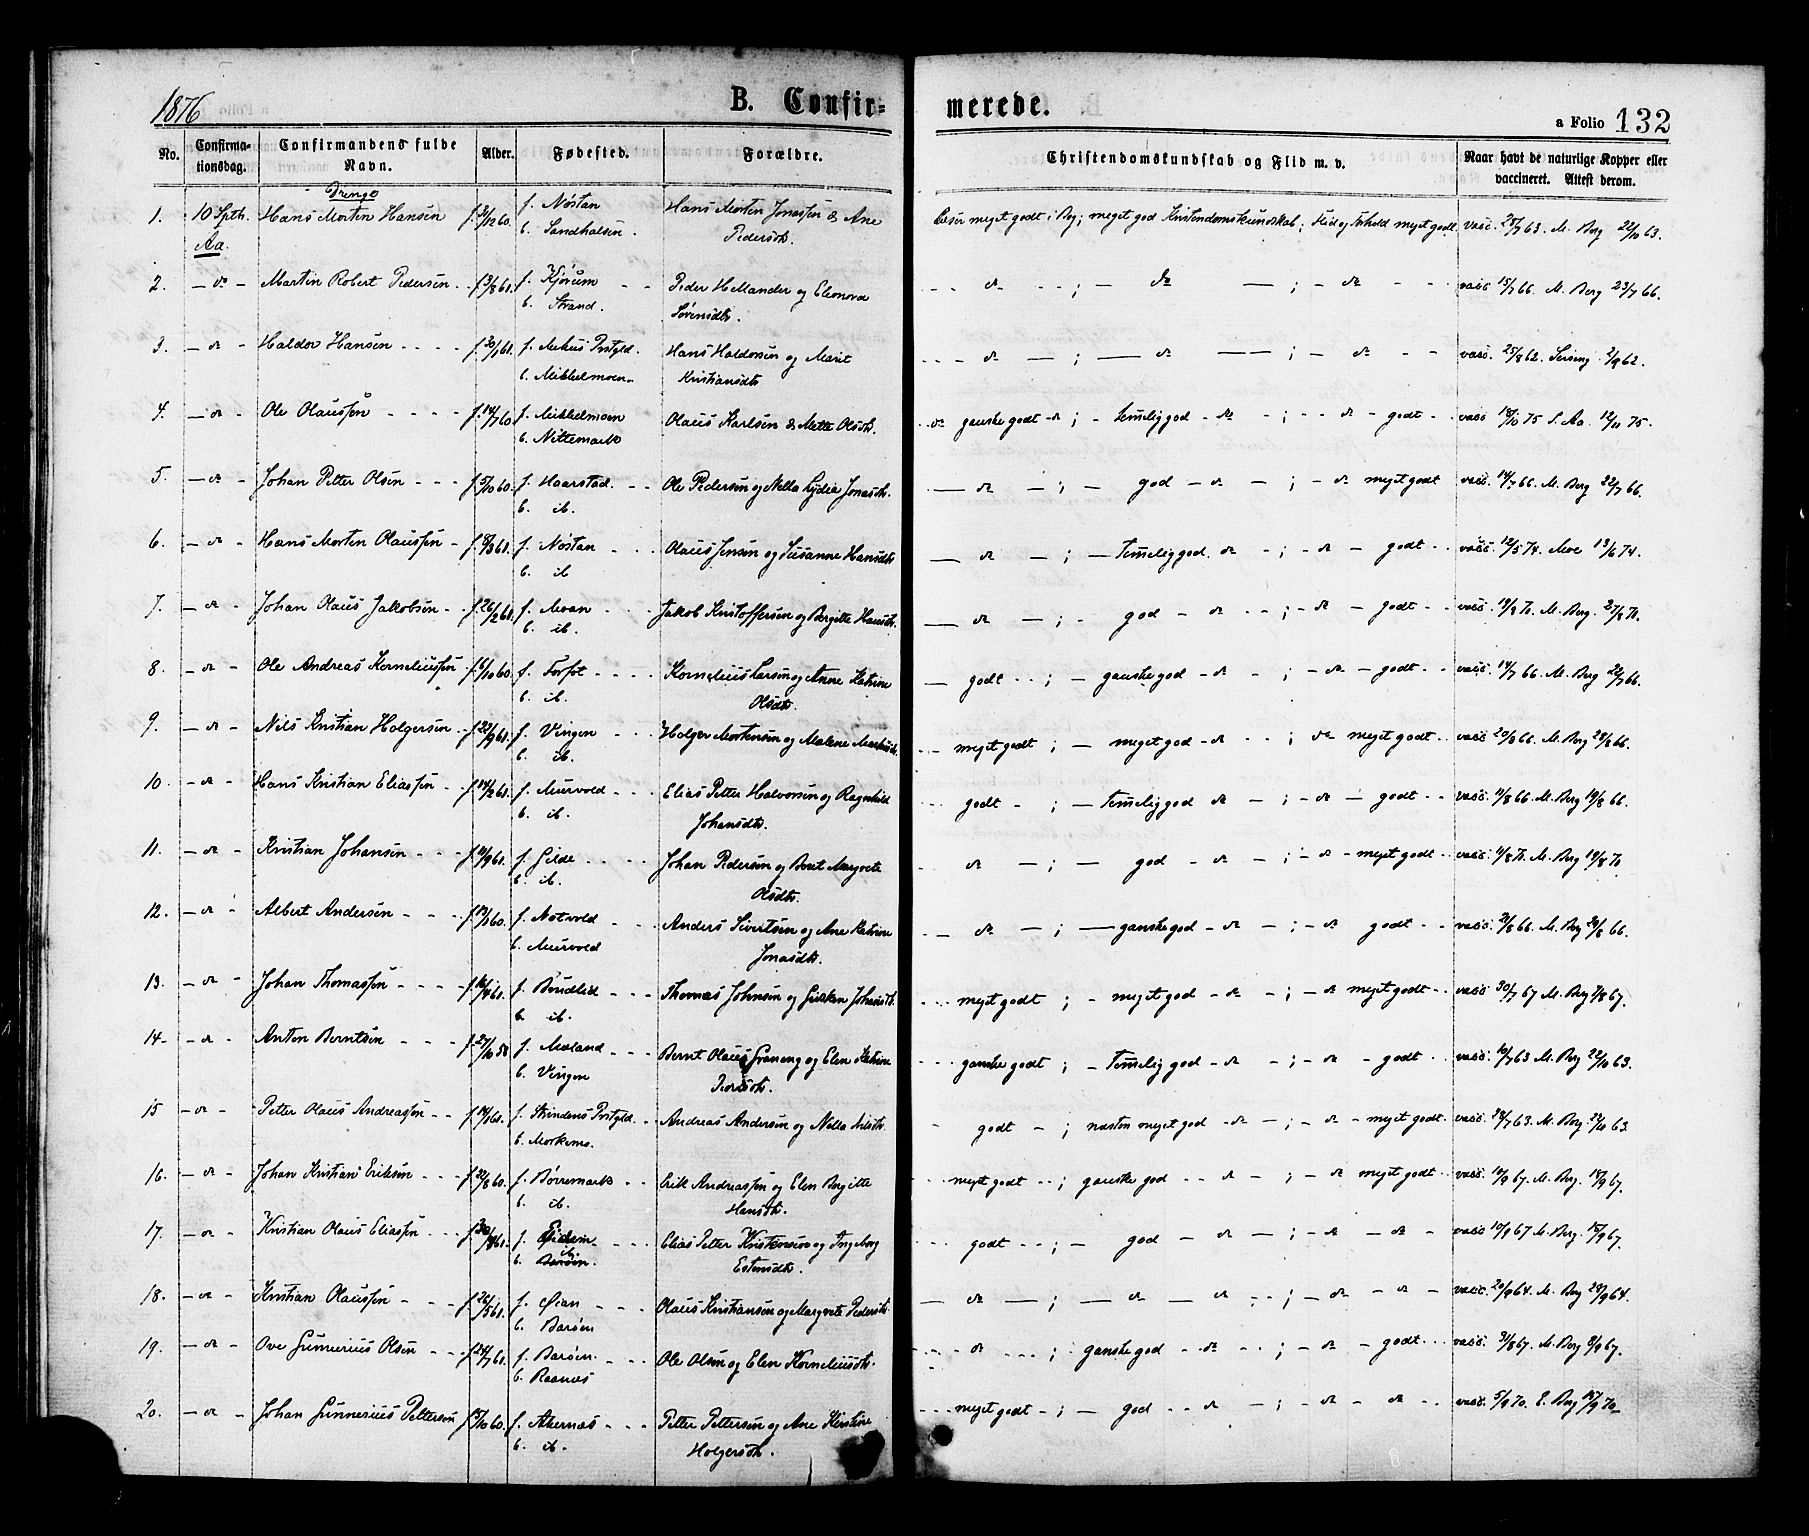 1876
B. Confir-
merede.
a Folio 132
No. Confirma-tionsdag. Confirmandens fulde Navn. Alder. Fødested. Forældre. Christendomskundskab og Flid m. v. Naar havt de naturlige Kopper eller vaccineret. Attest derom.
Drenge
1. 10 Spth. Hans Morten Hansen f. 31/12 60. f. Nøstan Hans Morten Jonassen & Ane læser meget godt i Bog; meget god Kristendomskundskab; Flid og Forhold meget godt vacc. 25/7 63. M. Berg 22/10 63.
Aa. b. Sandhalsen. Pedersdt.
2. - do - Martin Robert Pedersen f. 13/8 61. f. Kjørum Peder Hellander og Eleonora - do - ; - do - ; - do - vacc. 15/7 66. M. Berg 23/7 66.
b. Strand. Sørensdt.
3. - do - Haldor Hansen f. 30/1 61. f. Prstgld. Hans Haldorsen og Marit - do - ; - do - ; - do - vacc. 25/8 62. 2/9 62.
b. Mikkelmoen Kristiansdt.
4. - do - Ole Olaussen f. 14/7 60. f. Mikkelmoen Olaus Karlsen & Mette Olsdt. do ganske godt do ; temelig god - do - ; - do - godt vacc. 18/10 75 S. Aa. 12/11 75.
b. Nittemark
5. - do - Johan Petter Olsen f. 5/10 60. f. Haarstad Ole Pedersen og Nella Lydia Jonasdt. - do - ; - god - do - ; - do meget godt vacc. 14/7 66. M. Berg 22/7 66.
b. ib.
6. - do - Hans Morten Olaussen f. 8/3 61. f. Nøstan Olaus Jensen og Susanne Hansdt. - do - ; - Temelig god do - ; - do - godt vacc. 12/5 74. Moe 13/6 74.
b. ib
7. - do - Johan Olaus Jakobsen f. 26/2 61. f. Moan Jakob Kristoffersen og Bergitte Hansdt. - do - ; - god - do - ; - do - godt vacc. 19/8 71. M. Berg 27/8 71.
b. ib.
8. - do - Ole Andreas Korneliussen f. 16/10 60. f. Forfot Kornelius Larsen og Anne Katrine - godt ; - ganske god - do - ; - do - godt vacc. 14/7 66. M. Berg 22/7 66.
b. ib. Olsdt.
9. - do - Nils Kristian Holgersen f. 22/9 61. f. Vingen Holger Mortensen og Malene meget godt ; - meget god - do ; do meget godt vacc. 20/8 66. M. Berg 28/8 66.
b. ib.
10. - do - Hans Kristian Eliassen f. 14/2 61. f. Murvold Elias Petter Halvorsen og Ragnhild godt - ; - Temelig god do - ; - do - godt vacc. 11/8 66. M. Berg 19/8 66.
b. ib. Johansdt.
11. - do - Kristian Johansen f. 14/9 61. f. Gilde Johan Pedersen og Beret Margrete do - ; - god - do - ; - do - meget godt vacc. 11/8 71. M. Berg 19/8 71
b. ib. Olsdt.
12. - do - Albert Andersen f. 19/1 60. f. Notvold Anders Sivertsen og Ane Katrine - do - ; - ganske god - do - ; - do godt vacc. 21/8 66. M. Berg 29/8 66.
b. Murvold Jonasdt.
13. - do - Johan Thomassen f. 16/4 61. f. Bondlid Thomas Johnsen og Gurken Johansdt. meget godt ; - meget god - do - ; - do meget godt vacc. 30/7 67 M. Berg 7/8 67.
b. ib.
14. - do - Anton Berntsen f. 27/10 58 f. Moland Bernt Olaus Graneng og Elen Katrine ganske godt ; - Temelig god - do - ; - do - godt vacc. 10/7 63 M. Berg 22/10 63.
b. Vingen
15 - do - Petter Olaus Andreassen f. 14/1 61. f. Strindens Prstgld. Andreas Andersen og Nella Nilsdt. - godt - ; næsten meget god - do - ; - do - meget godt vacc. 28/7 63. M. Berg 22/10 63.
b. Morkemo.
16. - do - Johan Kristian Eriksen f. 22/8 60. f. Børremark Erik Andreassen og Elen Bergitte meget godt ; ganske god - do - ; - do meget godt vacc. 10/9 67. M. Berg 18/9 67.
b. ib. Hansdt.
17. - do - Kristian Olaus Eliassen f. 30/8 61. f. Eidem Elias Petter Kristensen og Ingeborg godt ; - god - do - ; - do - do - vacc. 10/9 67 M. Berg. 18/9 67.
b. ib. Estensdt.
18. - do - Kristian Olaussen f. 26/5 61. f. Øian Olaus Kristiansen og Margrete Pedersdt. - do - ; - do - do ; - do - do - vacc. 20/9 64. M. Berg 28/9 64.
b. Barøen
19. - do - Ove Gunnerius Olsen f. 24/7 61. f. Barøen Ole Olsen og Elen Korneliusdt. - do ; ganske god - do ; - do - godt vacc. 31/8 67. M. Berg 8/9 67.
b. Raanes
20. - do - Johan Gunnerius Pettersen f. 17/10 60. f. Akernæs Petter Pettersen og Ane Kirstine meget godt - ; - god - do - ; - do - do - vacc. 5/9 70. E. Berg 17/9 70.
b. ib. Holgersdt.